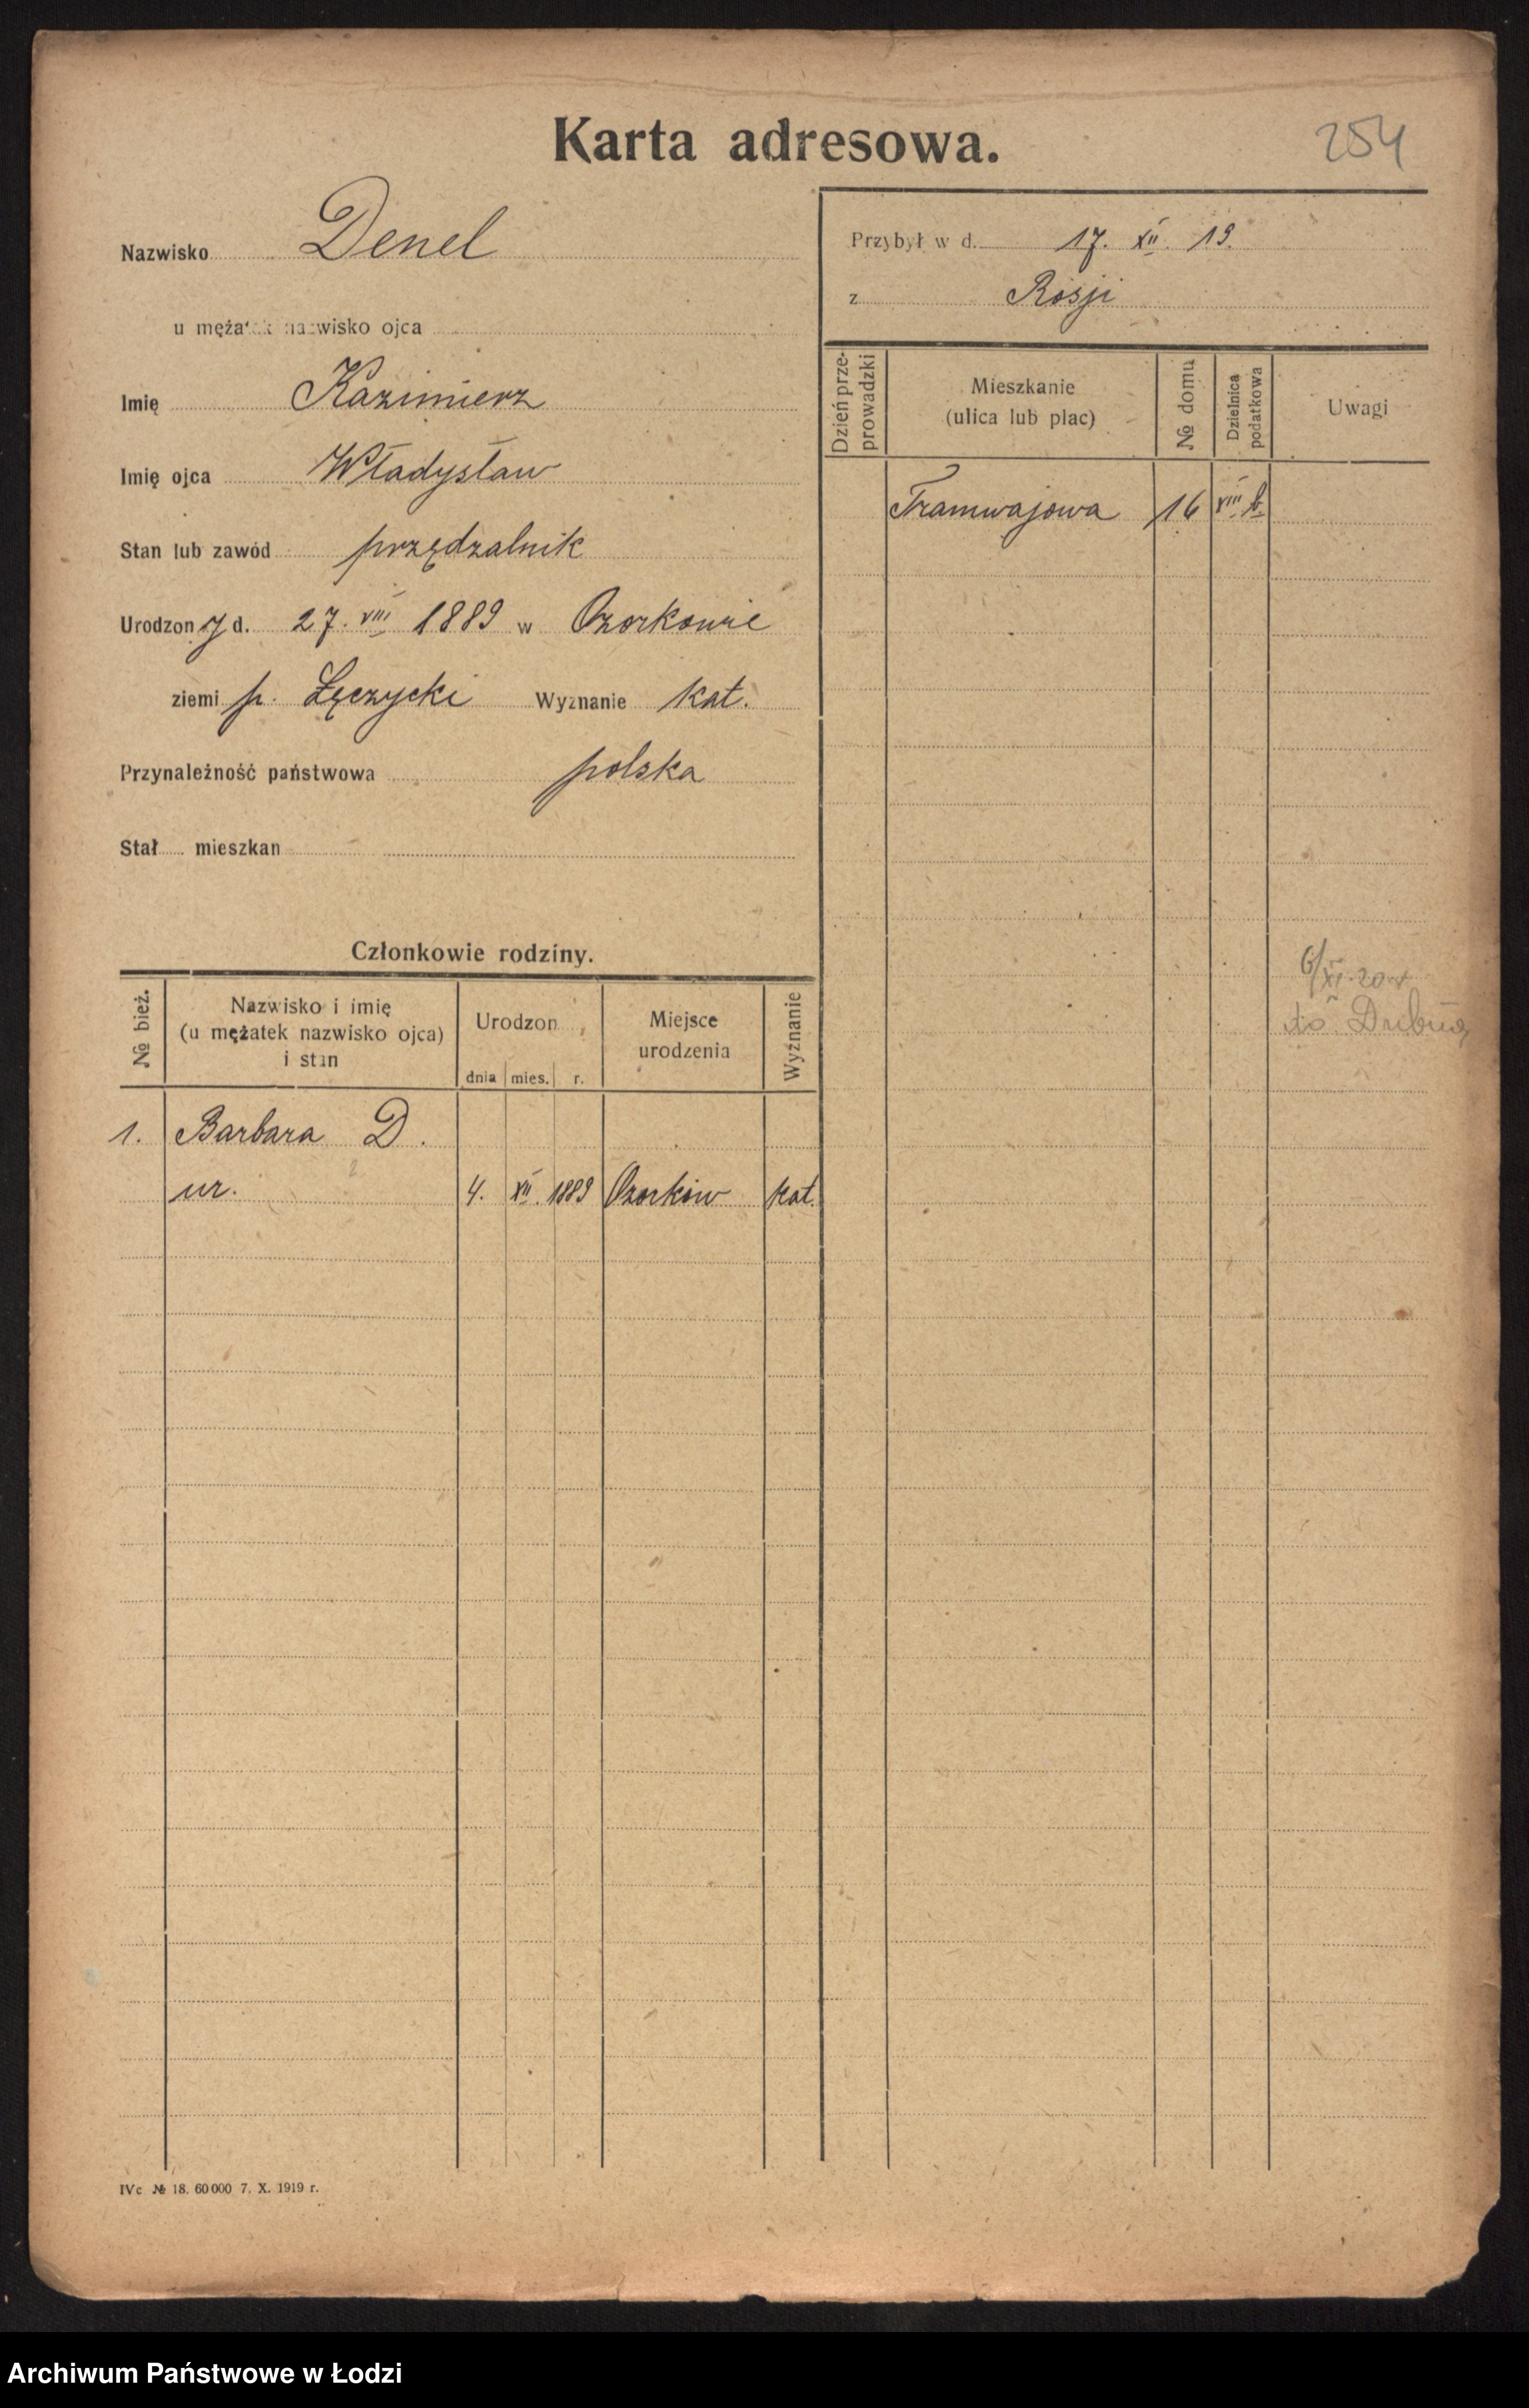 Karta adresowa.
254
Nazwisko Denel
u mężatek nazwisko ojca
Imię Kazimierz
Imię ojca Władysław
Stan lub zawód przędzalnik
Urodzony d. 27. VIII 1889 w Ozorkowie
ziemi p. Łęczycki Wyznanie kat.
Przynależność państwowa polska
Stał mieszkan
Przybył w d. 17. XII. 19.
z Rosji
Dzień prze-
prowadzki
Mieszkanie
(ulica lub plac)
№ domu
Dzielnica
podatkowa
Uwagi
Tramwajowa 16 VIII b
6/XI. 20 r
do
Członkowie rodziny.
№ bież.
Nazwisko i imię
(u mężatek nazwisko ojca)
i stan
Urodzon
dnia mies. r.
Miejsce
urodzenia
Wyznanie
1. Barbara D.
ur. 4. XII. 1889 Ozorków kat.
IVc № 18. 60000 7. X. 1919 r.
Archiwum Państwowe w Łodzi